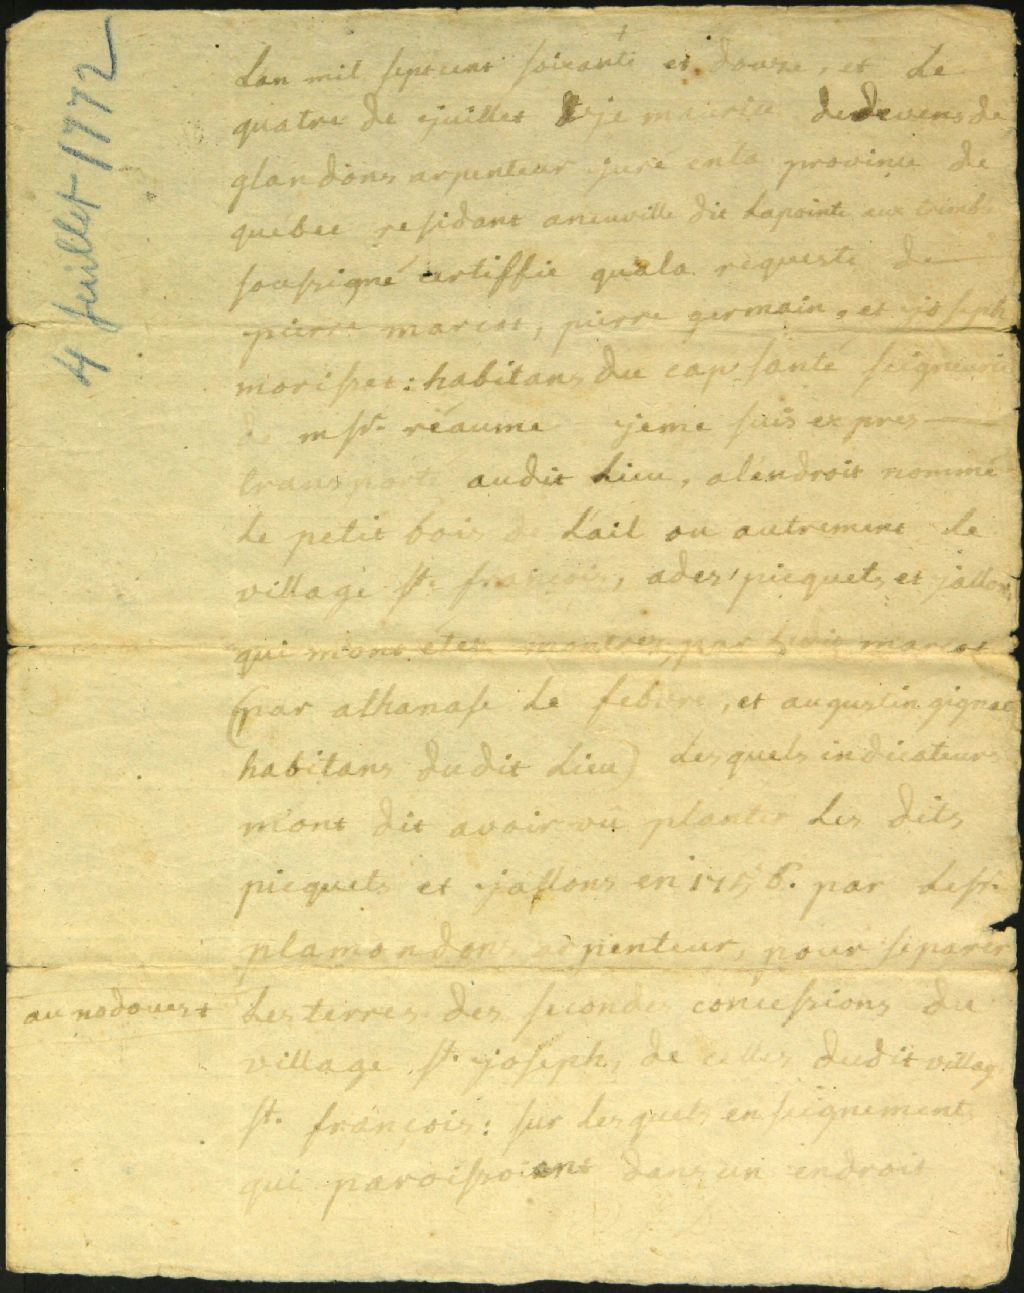 4 juillet 1772
Lan mil sept cent soixante et douze, et Le
quatre de juillet je maurice dedevens de
glandons arpenteur juré en la province de
québec residant aneuville dit Lapointe aux tremb
soussigné certiffie quala requeste de
pierre marcot, pierre germain, et joseph
morisset: habitans du cap santé seigneurie
de msr. réaume jeme suis expres
transporté audit Lieu, alendroit nommé
Le petit bois de Lail ou autrement Le
village st. françois, ades picquets et jallons
qui mont étez montrez, par Louis marcot
(par athanase Le febvre, et augustin gignac
habitans dudit Lieu) Lesquels indicateurs
mont dit avoir vû planter Les dits
picquets et jallons en 1756. par Lesr.
plamondon arpenteur, pour séparer
au nodouest
Les terres des secondes concessions du
village st. joseph, de celles dudit villag
st. françois: sur Lesquels enseignements
qui paroissoient dans un endroit